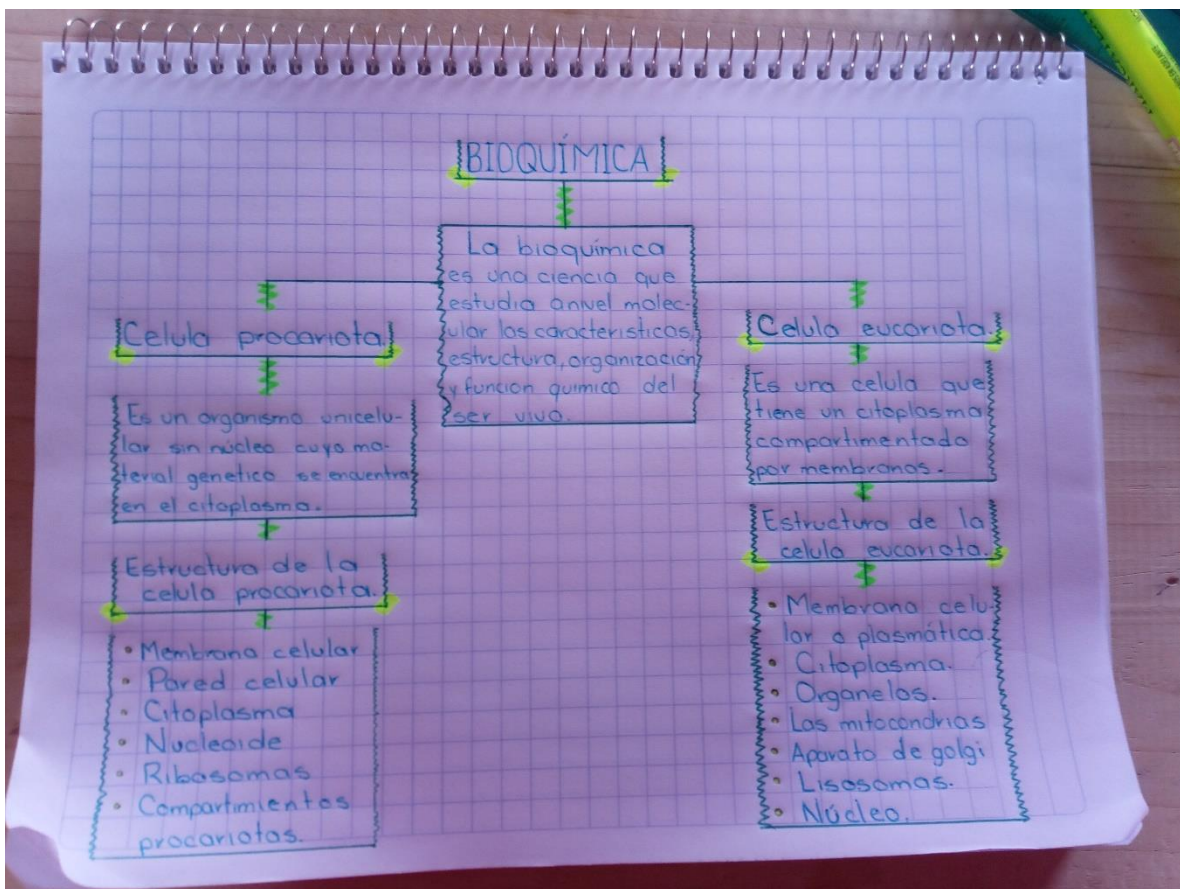 BIOQUÍMICA
La bioquímica
es una ciencia que
estudia anivel molec-
ular las caracteristicas,
estructura, organización
y funcion quimica del
ser vivo.
Celula procariota.
Es un organismo unicelu-
lar sin núcleo cuyo ma-
terial genetico se encuentra
en el citoplasma.
Estructura de la
celula procariota.
• Membrana celular
• Pared celular
• Citoplasma
• Nucleoide
• Ribosomas
• Compartimientos
procariotas.
Celula eucariota.
Es una celula que
tiene un citoplasma
compartimentado
por membranas.
Estructura de la
celula eucariota.
• Membrana celu-
lar o plasmática.
• Citoplasma.
• Organelos.
• Las mitocondrias
• Aparato de golgi
• Lisosomas.
• Núcleo.